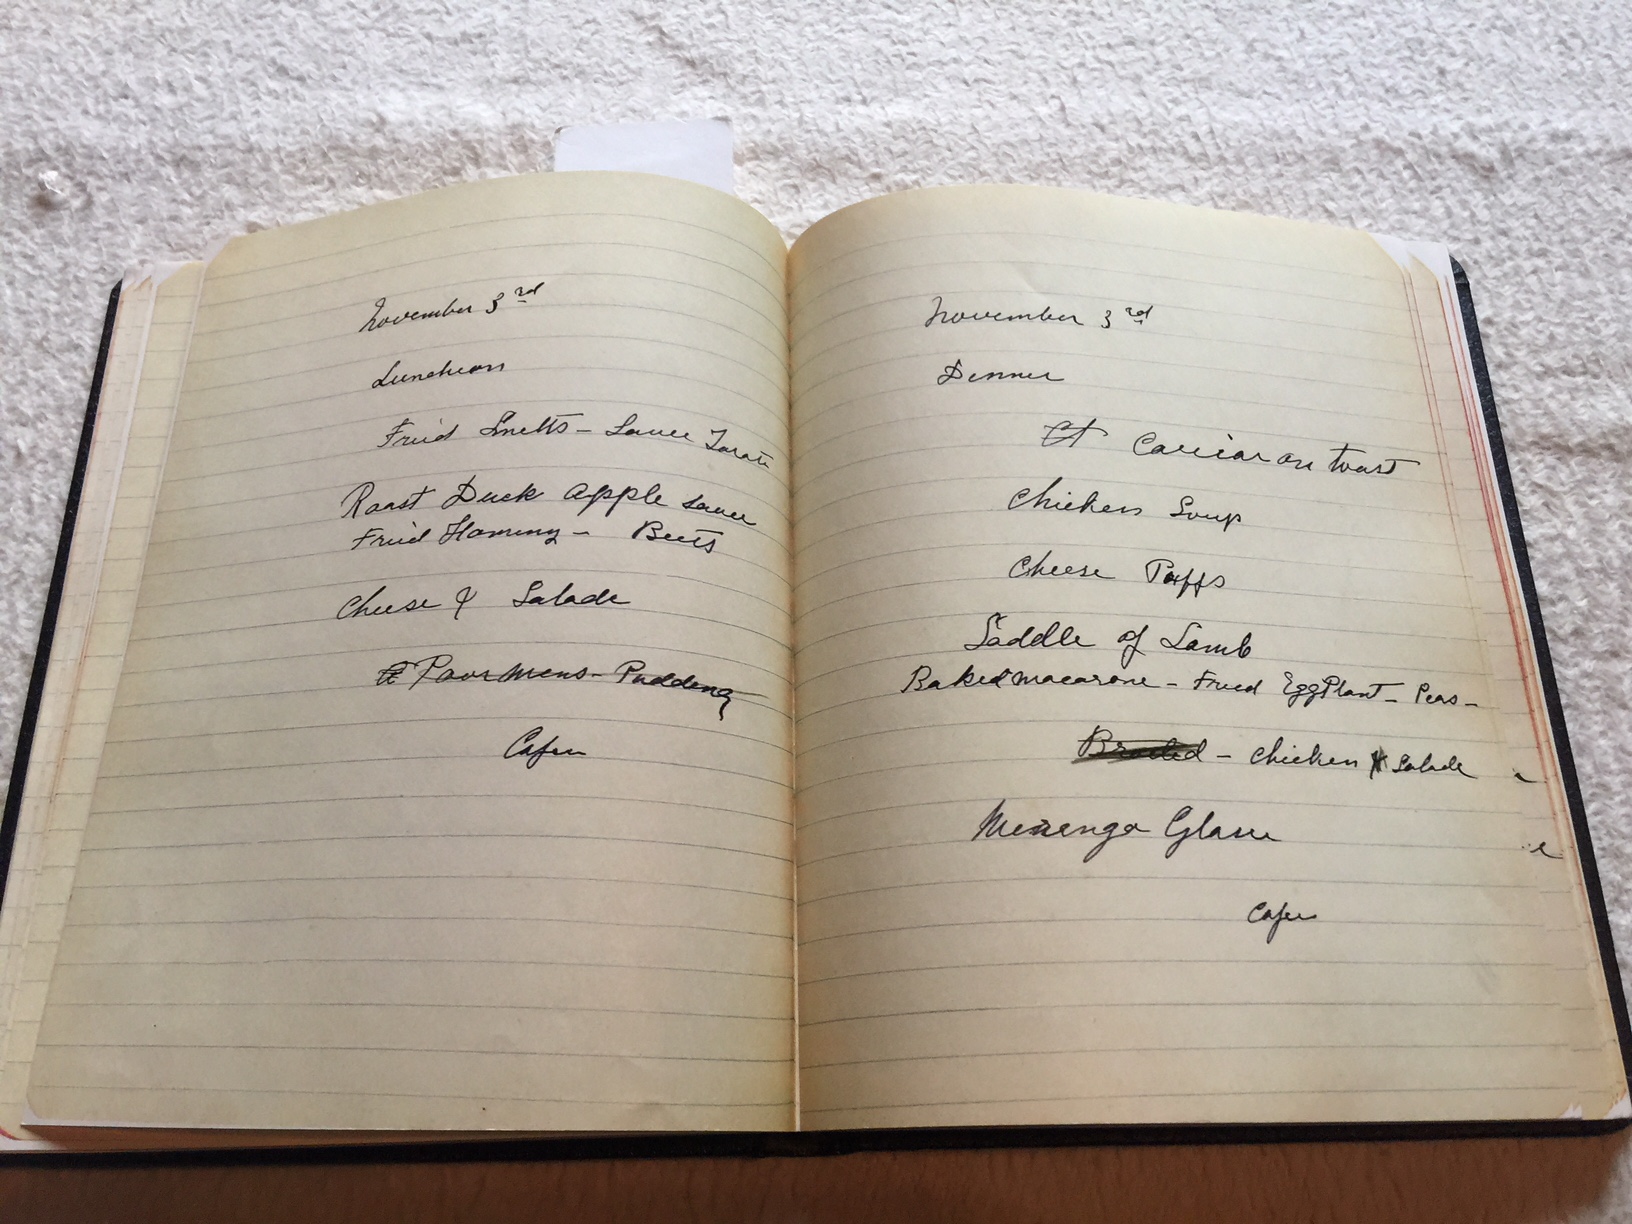 November 3rd
Luncheon
Fried Smelts - Sauce Tarat
Roast Duck apple sauce
Fried Hominy - Beets
Cheese & Salade
Poormens - Pudding
Cafee
November 3rd
Dinner
Caviar on toast
Chicken Soup
Cheese Puffs
Saddle of Lamb
Baked macarone - Fried EggPlant - Peas -
Broiled - Chicken & Salade
Merengo Glasee
Cafee